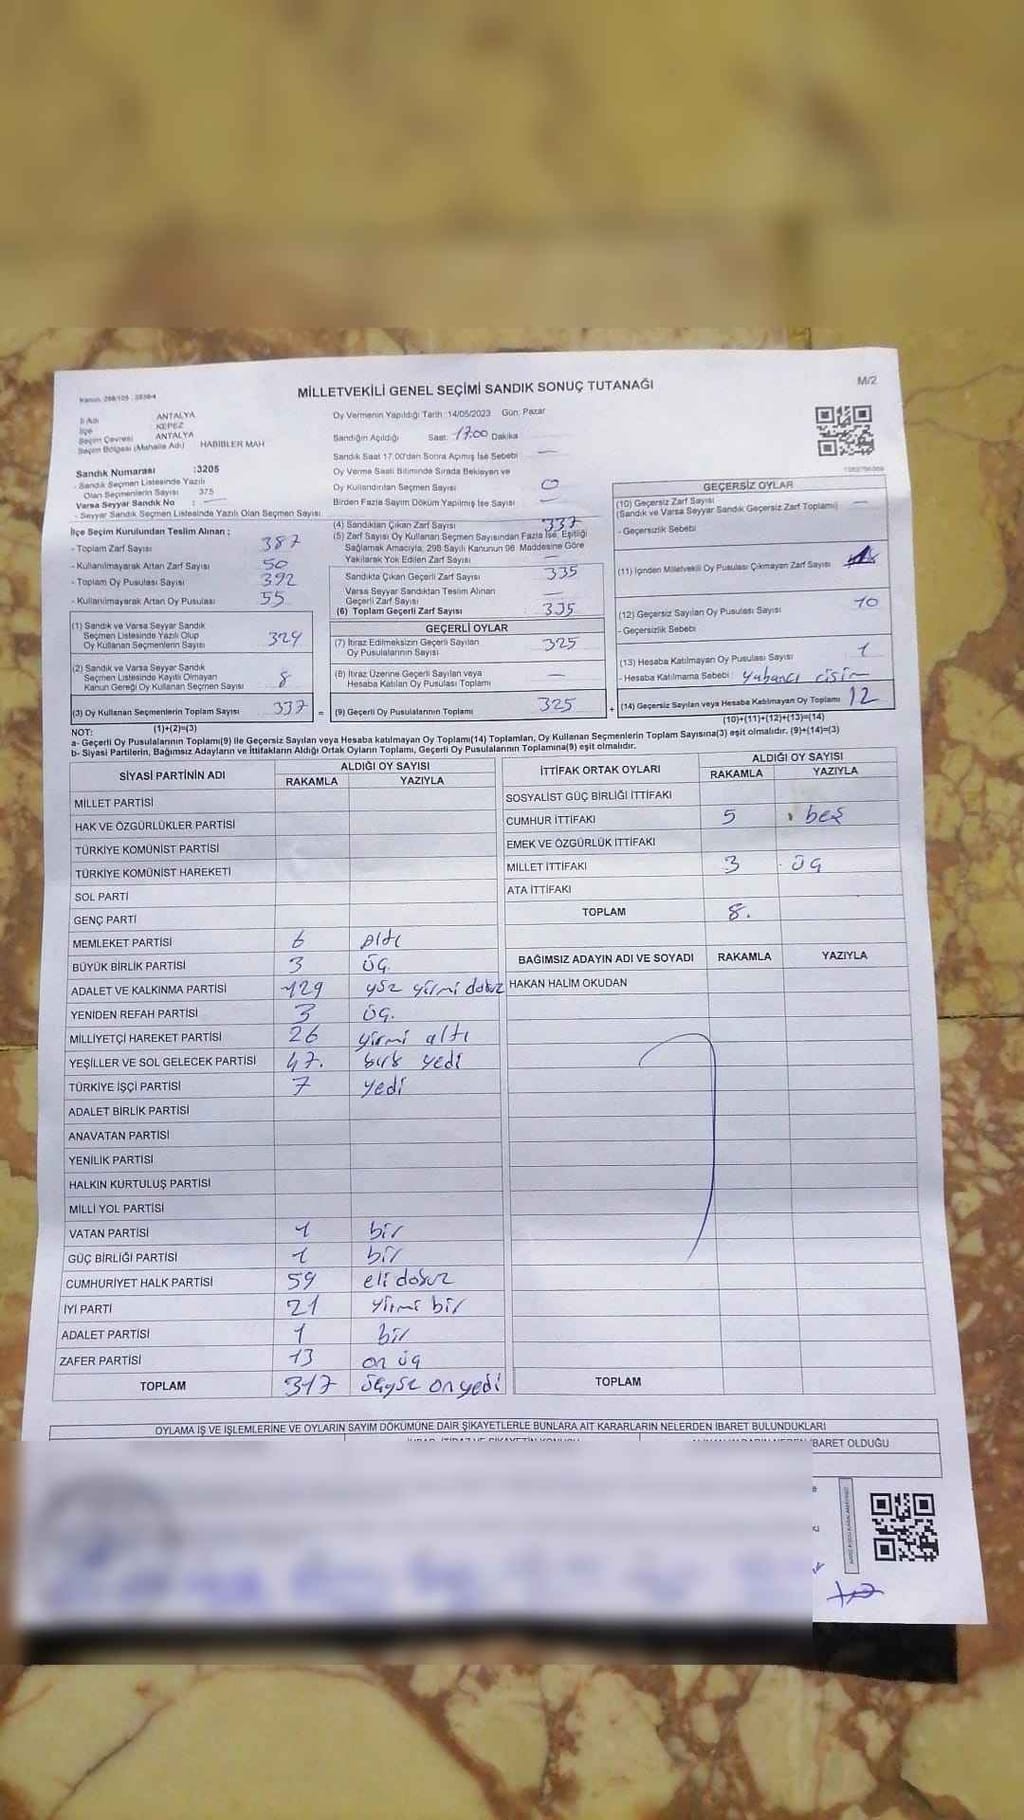 MİLLETVEKİLİ GENEL SEÇİMİ SANDIK SONUÇ TUTANAĞI
M/2
İl Adı ANTALYA
İlçe KEPEZ
Seçim Çevresi ANTALYA
Seçim Bölgesi (Mahalle Adı) HABİBLER MAH
Sandık Numarası :3205
- Sandık Seçmen Listesinde Yazılı
Olan Seçmenlerin Sayısı 375
Varsa Seyyar Sandık No : —
- Seyyar Sandık Seçmen Listesinde Yazılı Olan Seçmen Sayısı
Oy Vermenin Yapıldığı Tarih :14/05/2023 Gün: Pazar
Sandığın Açıldığı Saat: 17.00 Dakika
Sandık Saat 17.00'dan Sonra Açımış İse Sebebi —
Oy Verme Saati Bitiminde Sırada Bekleyen ve
Oy Kullandırılan Seçmen Sayısı 0
Birden Fazla Sayım Döküm Yapılmış İse Sayısı —
İlçe Seçim Kurulundan Teslim Alınan :
- Toplam Zarf Sayısı 387
- Kullanılmayarak Artan Zarf Sayısı 50
- Toplam Oy Pusulası Sayısı 392
- Kullanılmayarak Artan Oy Pusulası 55
(1) Sandık ve Varsa Seyyar Sandık
Seçmen Listesinde Yazılı Olup
Oy Kullanan Seçmenlerin Sayısı 329
(2) Sandık ve Varsa Seyyar Sandık
Seçmen Listesinde Kayıtlı Olmayan
Kanun Gereği Oy Kullanan Seçmen Sayısı 8
(3) Oy Kullanan Seçmenlerin Toplam Sayısı 337
(1)+(2)=(3)
(4) Sandıktan Çıkan Zarf Sayısı 337
(5) Zarf Sayısı Oy Kullanan Seçmen Sayısından Fazla İse, Eşitliği
Sağlamak Amacıyla, 298 Sayılı Kanunun 98 Maddesine Göre
Yakılarak Yok Edilen Zarf Sayısı —
Sandıkta Çıkan Geçerli Zarf Sayısı 335
Varsa Seyyar Sandıktan Teslim Alınan
Geçerli Zarf Sayısı —
(6) Toplam Geçerli Zarf Sayısı 335
GEÇERLİ OYLAR
(7) İtiraz Edilmeksizin Geçerli Sayılan
Oy Pusulalarının Sayısı 325
(8) İtiraz Üzerine Geçerli Sayılan veya
Hesaba Katılan Oy Pusulası Toplamı —
= (9) Geçerli Oy Pusulalarının Toplamı 325 +
GEÇERSİZ OYLAR
(10) Geçersiz Zarf Sayısı —
(Sandık ve Varsa Seyyar Sandık Geçersiz Zarf Toplamı)
- Geçersizlik Sebebi
(11) İçinden Milletvekili Oy Pusulası Çıkmayan Zarf Sayısı
(12) Geçersiz Sayılan Oy Pusulası Sayısı 10
- Geçersizlik Sebebi
(13) Hesaba Katılmayan Oy Pusulası Sayısı 1
- Hesaba Katılmama Sebebi yabancı cisim
(14) Geçersiz Sayılan veya Hesaba Katılmayan Oy Toplamı 12
(10)+(11)+(12)+(13)=(14)
NOT:
a- Geçerli Oy Pusulalarının Toplamı(9) ile Geçersiz Sayılan veya Hesaba katılmayan Oy Toplamı(14) Toplamları, Oy Kullanan Seçmenlerin Toplam Sayısına(3) eşit olmalıdır. (9)+(14)=(3)
b- Siyasi Partilerin, Bağımsız Adayların ve İttifakların Aldığı Ortak Oyların Toplamı, Geçerli Oy Pusulalarının Toplamına(9) eşit olmalıdır.
SİYASİ PARTİNİN ADI ALDIĞI OY SAYISI
RAKAMLA YAZIYLA
MİLLET PARTİSİ
HAK VE ÖZGÜRLÜKLER PARTİSİ
TÜRKİYE KOMÜNİST PARTİSİ
TÜRKİYE KOMÜNİST HAREKETİ
SOL PARTİ
GENÇ PARTİ
MEMLEKET PARTİSİ 6 altı
BÜYÜK BİRLİK PARTİSİ 3 üç.
ADALET VE KALKINMA PARTİSİ 129 yüz yirmi dokuz
YENİDEN REFAH PARTİSİ 3 üç.
MİLLİYETÇİ HAREKET PARTİSİ 26 yirmi altı
YEŞİLLER VE SOL GELECEK PARTİSİ 47. kırk yedi
TÜRKİYE İŞÇİ PARTİSİ 7 yedi
ADALET BİRLİK PARTİSİ
ANAVATAN PARTİSİ
YENİLİK PARTİSİ
HALKIN KURTULUŞ PARTİSİ
MİLLİ YOL PARTİSİ
VATAN PARTİSİ 1 bir
GÜÇ BİRLİĞİ PARTİSİ 1 bir
CUMHURİYET HALK PARTİSİ 59 eli dokuz
İYİ PARTİ 21 yirmi bir
ADALET PARTİSİ 1 bir
ZAFER PARTİSİ 13 on üç
TOPLAM 317 on yedi
İTTİFAK ORTAK OYLARI ALDIĞI OY SAYISI
RAKAMLA YAZIYLA
SOSYALİST GÜÇ BİRLİĞİ İTTİFAKI
CUMHUR İTTİFAKI 5 beş
EMEK VE ÖZGÜRLÜK İTTİFAKI
MİLLET İTTİFAKI 3 üç
ATA İTTİFAKI
TOPLAM 8.
BAĞIMSIZ ADAYIN ADI VE SOYADI RAKAMLA YAZIYLA
HAKAN HALİM OKUDAN
TOPLAM
OYLAMA İŞ VE İŞLEMLERİNE VE OYLARIN SAYIM DÖKÜMÜNE DAİR ŞİKAYETLERLE BUNLARA AİT KARARLARIN NELERDEN İBARET BULUNDUKLARI
İBARET OLDUĞU